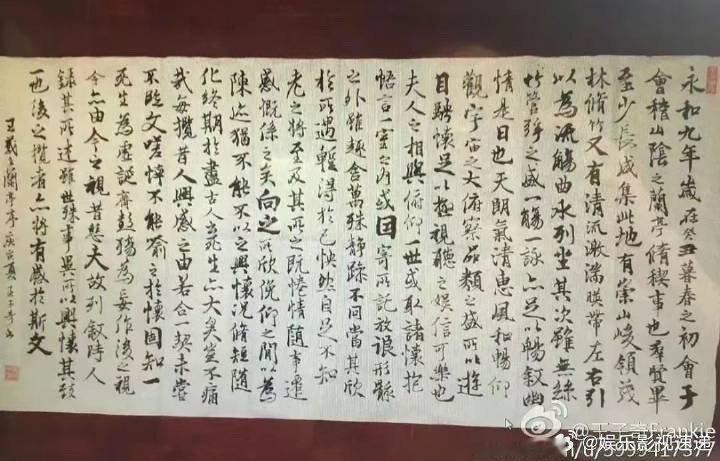 永和九年歲在癸丑暮春之初會于
會稽山陰之蘭亭脩稧事也羣賢畢
至少長咸集此地有崇山峻領茂
林脩竹又有清流激湍暎帶左右引
以為流觴曲水列坐其次雖無絲
竹管弦之盛一觴一詠亦足以暢敘幽
情是日也天朗氣清惠風和暢仰
觀宇宙之大俯察品類之盛所以遊
目騁懷足以極視聽之娛信可樂也
夫人之相與俯仰一世或取諸懷抱
悟言一室之內或因寄所託放浪形骸
之外雖趣舍萬殊靜躁不同當其欣
於所遇暫得於己怏然自足不知
老之將至及其所之既惓情隨事遷
感慨係之矣向之所欣俛仰之閒以為
陳迹猶不能不以之興懷況脩短隨
化終期於盡古人云死生亦大矣豈不痛
哉每攬昔人興感之由若合一契未嘗
不臨文嗟悼不能喻之於懷固知一
死生為虛誕齊彭殤為妄作後之視
今亦由今之視昔悲夫故列敘時人
錄其所述雖世殊事異所以興懷其致
一也後之攬者亦將有感於斯文
王羲之蘭亭序 庚寅夏 王子奇
@王子奇Frankie
@娱乐影视速递